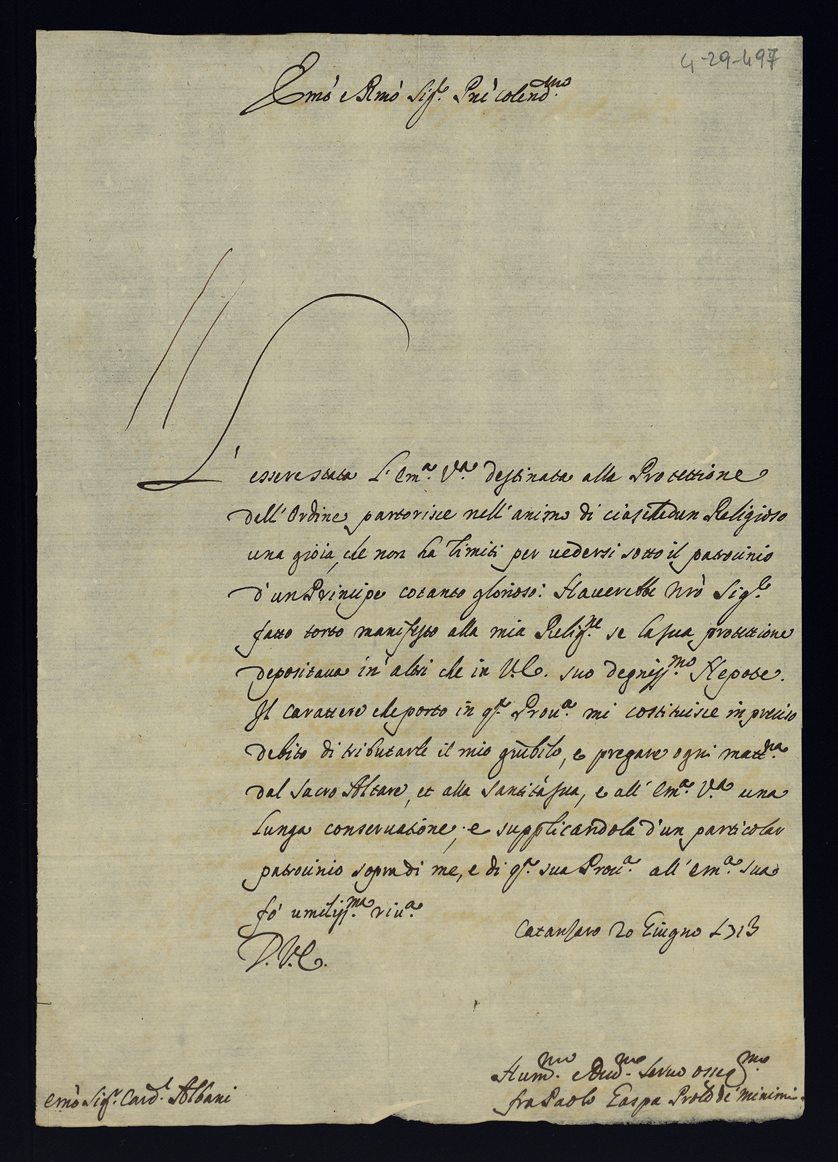 4-29-497
Emo e Rmo Sig.re Pne Colendmo
L'essere stata l'Em.a V.a destinata alla Protettione
dell'Ordine, partorisce nell'animo di ciaschedun Religioso
una gioia, che non ha limiti per vedersi sotto il patrocinio
d'un Principe cotanto glorioso: Haverebbe Nrò Sig.re
fatto torto manifesto alla mia Relig.ne se la sua protettione
depositava in altri che in V.E. suo degniss.mo Nepote.
Il carattere che porto in q.ta Prov.a mi costituisce in preciso
debito di tributarle il mio giubilo, e pregare ogni matt.na
dal Sacro Altare, et alla Santità sua, e all'Em.a V.a una
lunga conservatione; e supplicandola d'un particolar
patrocinio sopra di me, e di q.ta sua Prov.a all'Em.a sua
fò umiliss.ma riv.a
D.V.E.
Catanzaro 20 Giugno 1713
Emò Sig.r Card.l Albani
Hum.mo e Dev.mo Servo osseq.mo
fra Paolo de' Minimi